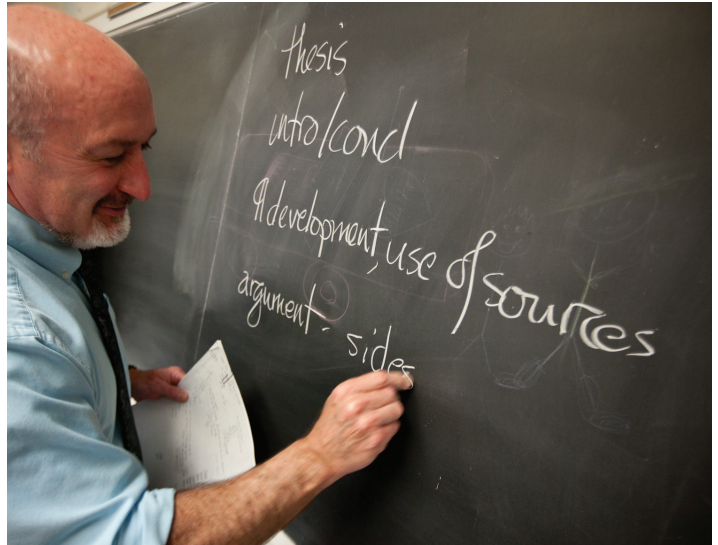 thesis
intro/concl
¶ development, use of sources
argument - sides